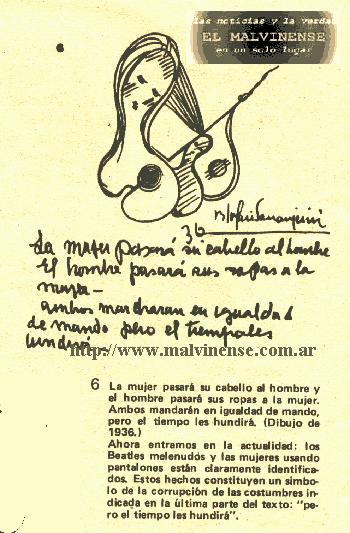 las noticias y la verdad
EL MALVINENSE
en un solo lugar
36
La mujer pasará su cabello al hombre
El hombre pasará sus ropas a la
mujer —
ambos mandaran en igualdad
de mando pero el tiempo les
hundirá —
http://www.malvinense.com.ar
6 La mujer pasará su cabello al hombre y
el hombre pasará sus ropas a la mujer.
Ambos mandarán en igualdad de mando,
pero el tiempo les hundirá. (Dibujo de
1936.)
Ahora entramos en la actualidad: los
Beatles melenudos y las mujeres usando
pantalones están claramente identifica-
dos. Estos hechos constituyen un símbo-
lo de la corrupción de las costumbres in-
dicada en la última parte del texto: "pe-
ro el tiempo les hundirá".